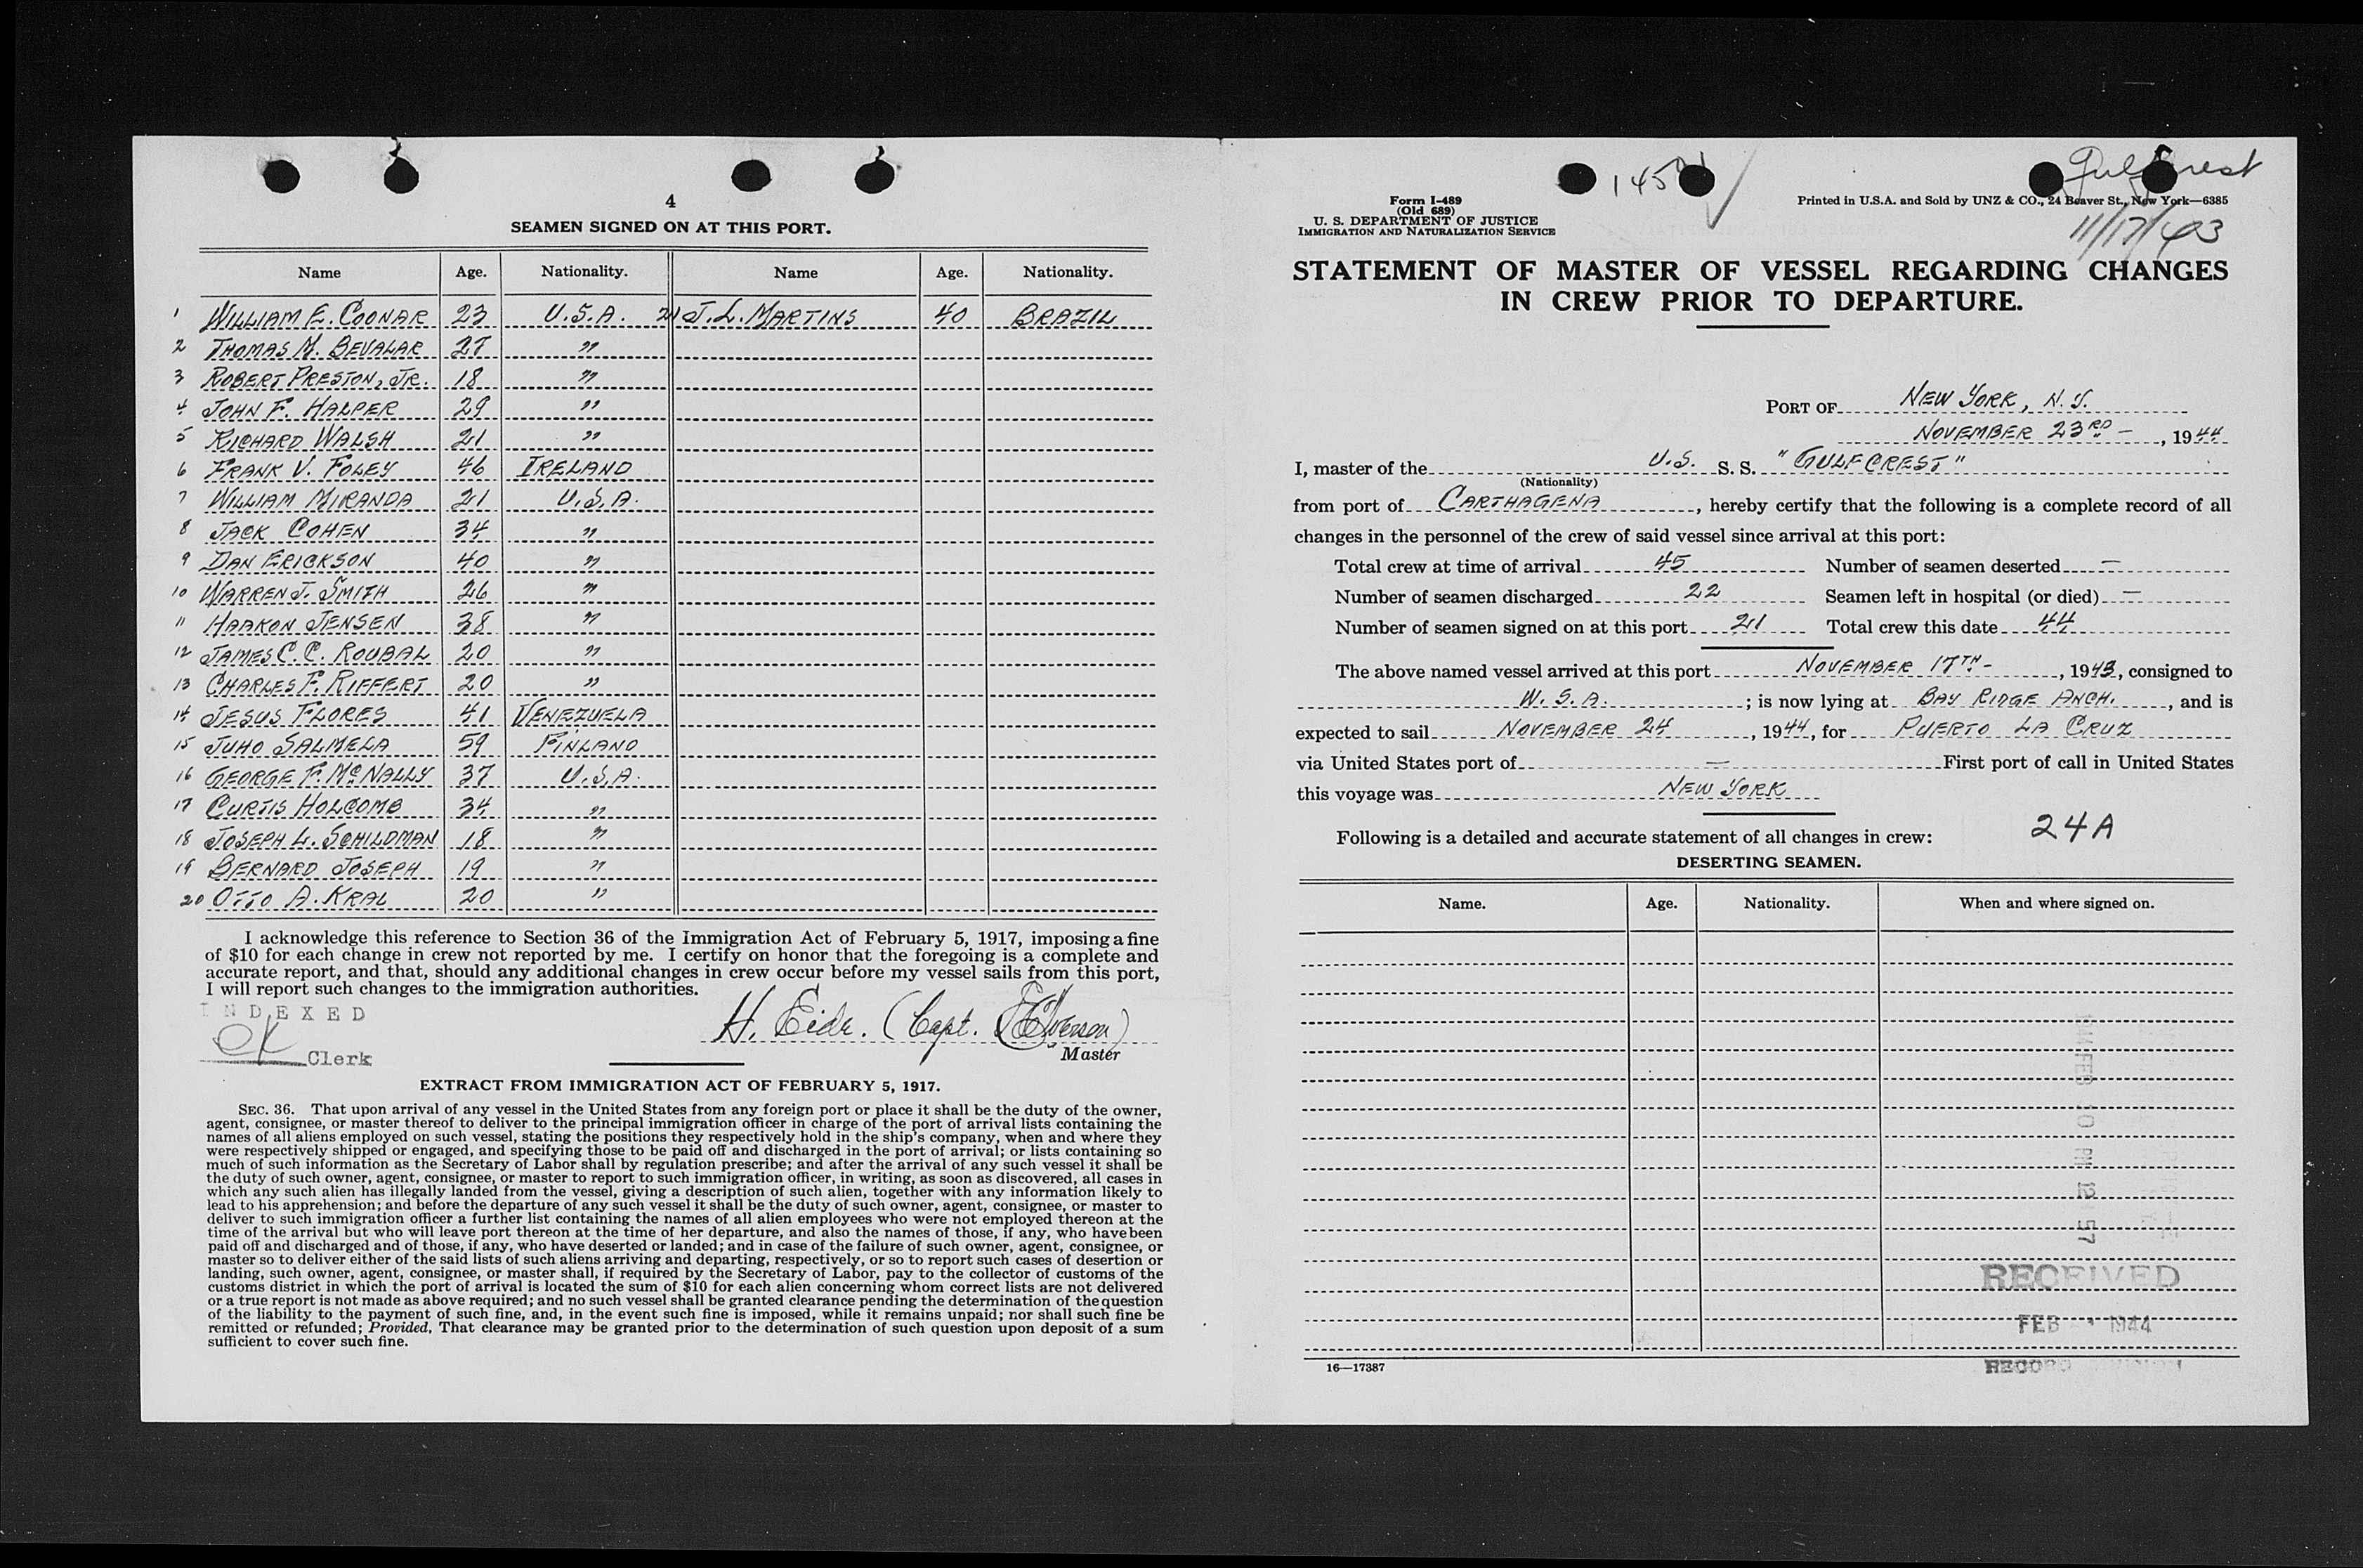 4
SEAMEN SIGNED ON AT THIS PORT.
Name Age. Nationality. Name Age. Nationality.
1 WILLIAM E. COONAR 23 U.S.A. 21 J. L. MARTINS 40 BRAZIL
2 THOMAS M. BEVALAR 27 "
3 ROBERT PRESTON, JR. 18 "
4 JOHN F. HALPER 29 "
5 RICHARD WALSH 21 "
6 FRANK V. FOLEY 46 IRELAND
7 WILLIAM MIRANDA 21 U.S.A.
8 JACK COHEN 34 "
9 DAN ERICKSON 40 "
10 WARREN J. SMITH 26 "
11 HAAKON JENSEN 38 "
12 JAMES C. C. ROUBAL 20 "
13 CHARLES F. RIFFERT 20 "
14 JESUS FLORES 41 VENEZUELA
15 JUHO SALMELA 59 FINLAND
16 GEORGE F. McNALLY 37 U.S.A.
17 CURTIS HOLCOMB 34 "
18 JOSEPH L. SCHILDMAN 18 "
19 BERNARD JOSEPH 19 "
20 OTTO A. KRAL 20 "
I acknowledge this reference to Section 36 of the Immigration Act of February 5, 1917, imposing a fine
of $10 for each change in crew not reported by me. I certify on honor that the foregoing is a complete and
accurate report, and that, should any additional changes in crew occur before my vessel sails from this port,
I will report such changes to the immigration authorities.
INDEXED
H. Eide. (Capt.
Clerk
Master
EXTRACT FROM IMMIGRATION ACT OF FEBRUARY 5, 1917.
SEC. 36. That upon arrival of any vessel in the United States from any foreign port or place it shall be the duty of the owner,
agent, consignee, or master thereof to deliver to the principal immigration officer in charge of the port of arrival lists containing the
names of all aliens employed on such vessel, stating the positions they respectively hold in the ship's company, when and where they
were respectively shipped or engaged, and specifying those to be paid off and discharged in the port of arrival; or lists containing so
much of such information as the Secretary of Labor shall by regulation prescribe; and after the arrival of any such vessel it shall be
the duty of such owner, agent, consignee, or master to report to such immigration officer, in writing, as soon as discovered, all cases in
which any such alien has illegally landed from the vessel, giving a description of such alien, together with any information likely to
lead to his apprehension; and before the departure of any such vessel it shall be the duty of such owner, agent, consignee, or master to
deliver to such immigration officer a further list containing the names of all alien employees who were not employed thereon at the
time of the arrival but who will leave port thereon at the time of her departure, and also the names of those, if any, who have been
paid off and discharged and of those, if any, who have deserted or landed; and in case of the failure of such owner, agent, consignee, or
master so to deliver either of the said lists of such aliens arriving and departing, respectively, or so to report such cases of desertion or
landing, such owner, agent, consignee, or master shall, if required by the Secretary of Labor, pay to the collector of customs of the
customs district in which the port of arrival is located the sum of $10 for each alien concerning whom correct lists are not delivered
or a true report is not made as above required; and no such vessel shall be granted clearance pending the determination of the question
of the liability to the payment of such fine, and, in the event such fine is imposed, while it remains unpaid; nor shall such fine be
remitted or refunded; Provided, That clearance may be granted prior to the determination of such question upon deposit of a sum
sufficient to cover such fine.
Gulfcrest
11/17/43
Form I-489
(Old 689)
U. S. DEPARTMENT OF JUSTICE
IMMIGRATION AND NATURALIZATION SERVICE
Printed in U.S.A. and Sold by UNZ & CO., 24 Beaver St., New York—6385
STATEMENT OF MASTER OF VESSEL REGARDING CHANGES
IN CREW PRIOR TO DEPARTURE.
PORT OF NEW YORK, N.Y.
NOVEMBER 23RD -, 1944
I, master of the U.S. S. S. "GULFCREST"
(Nationality)
from port of CARTHAGENA, hereby certify that the following is a complete record of all
changes in the personnel of the crew of said vessel since arrival at this port:
Total crew at time of arrival 45 Number of seamen deserted —
Number of seamen discharged 22 Seamen left in hospital (or died) —
Number of seamen signed on at this port 21 Total crew this date 44
The above named vessel arrived at this port NOVEMBER 17TH -, 1943, consigned to
W.S.A.; is now lying at BAY RIDGE ANCH., and is
expected to sail NOVEMBER 24, 1944, for PUERTO LA CRUZ
via United States port of — First port of call in United States
this voyage was NEW YORK
Following is a detailed and accurate statement of all changes in crew: 24A
DESERTING SEAMEN.
Name. Age. Nationality. When and where signed on.
RECEIVED
FEB 1944
16—17387